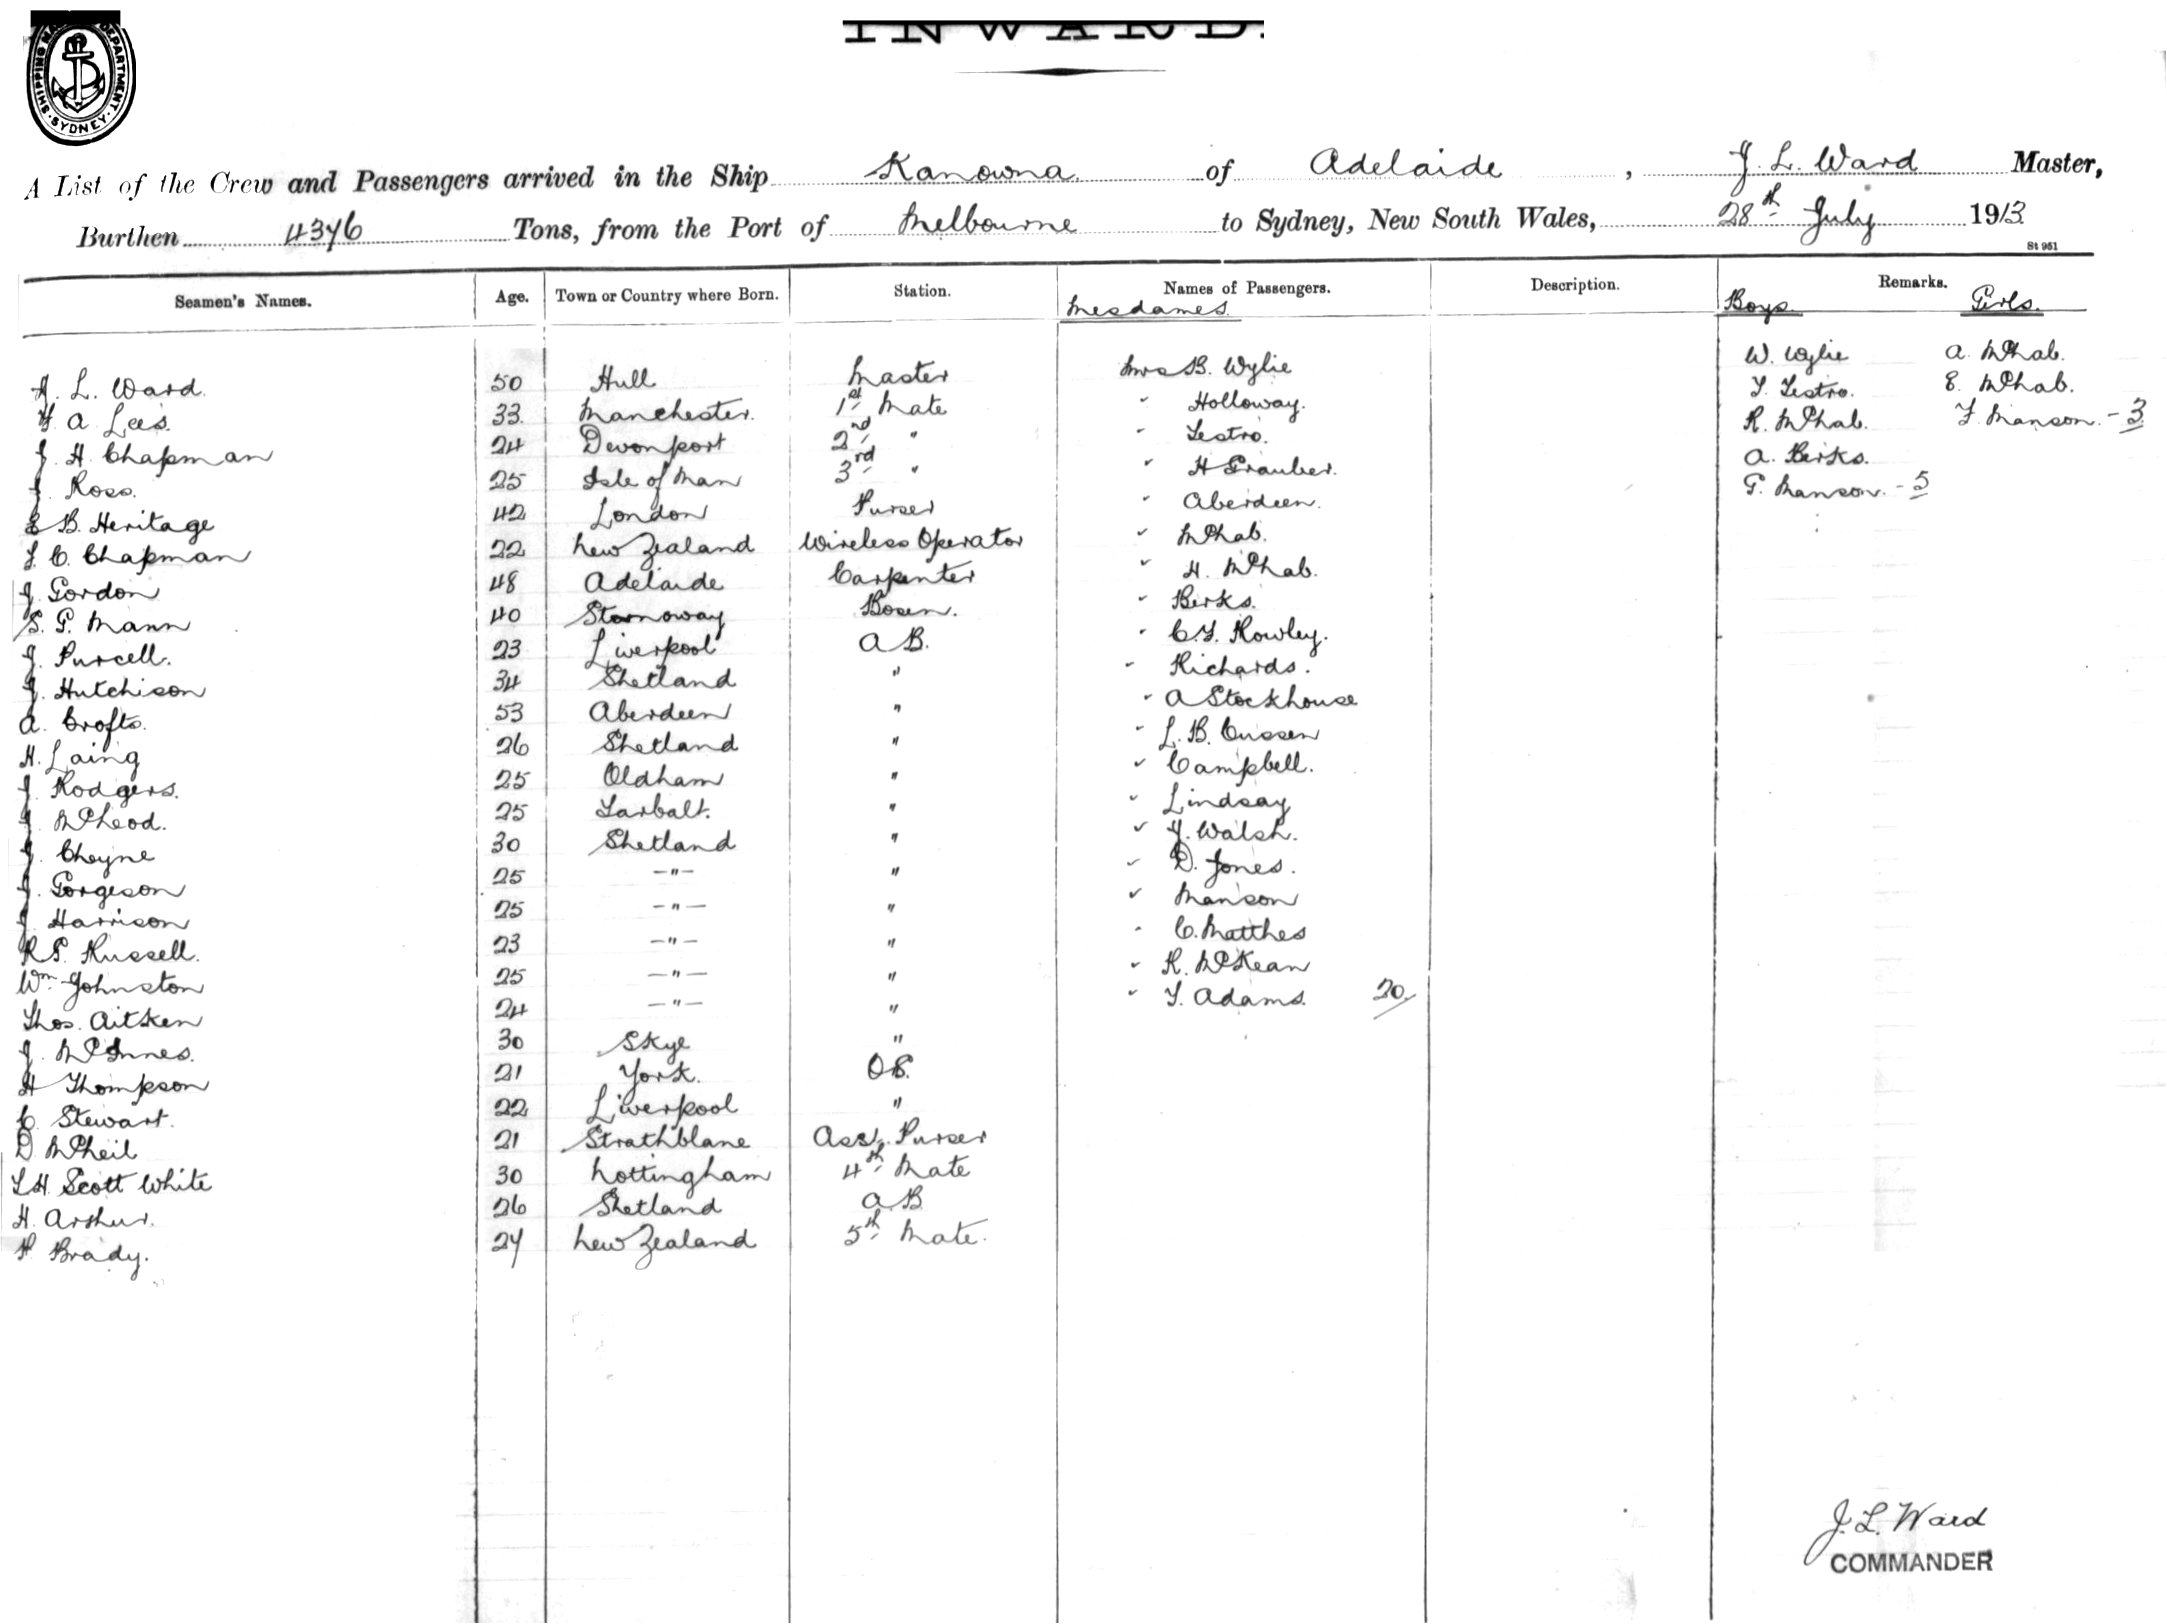 INWARD.
SHIPPING MA DEPARTMENT. SYDNEY.
A List of the Crew and Passengers arrived in the Ship Kanowna of Adelaide, J. L. Ward Master,
Burthen 4376 Tons, from the Port of Melbourne to Sydney, New South Wales, 28th July 1913
St 951
Seamen's Names. Age. Town or Country where Born. Station. Names of Passengers. Description. Remarks.
Mesdames Boys Girls.
J. L. Ward 50 Hull Master Mrs B. Wylie W. Wylie A. McPhab.
A Lees. 33. Manchester. 1st Mate " Holloway. T. Testro. E. McNab.
J. H. Chapman 24 Devonport 2nd " " Testro. R. McNab. F. Manson. - 3
J. Ross. 25 Isle of Man 3rd " " H Grauber. A. Berks.
E B. Heritage 42 London Purser " Aberdeen. G. Manson. - 5
L. C. Chapman 22 New Zealand Wireless Operator " McNab.
J. Gordon 48 Adelaide Carpenter " H. McNab.
S. G. Mann 40 Stornoway Bosen. " Berks.
J. Purcell. 23 Liverpool A B. " C. F. Rowley.
J. Hutchison 34 Shetland " " Richards.
A. Crofts. 53 Aberdeen " " A Stockhouse
H. Laing 26 Shetland " " L. B. Cussen
J. Rodgers. 25 Oldham " " Campbell.
J. McLeod. 25 Tarbalt. " " Lindsay
J. Cheyne 30 Shetland " " J. Walsh.
J. Gorgeson 25 -"- " " D. Jones.
J. Harrison 25 -"- " " Manson
R G. Russell. 23 -"- " " C. Matthes
Wm Johnston 25 -"- " " R. McKean
Thos. Aitken 24 -"- " " T. Adams. 20
J. McInnes. 30 Skye "
H Thompson 21 York. O S.
C. Stewart. 22 Liverpool "
D. McNeil 21 Strathblane Asst. Purser
L H. Scott White 30 Nottingham 4th Mate
H. Arthur. 26 Shetland A B
P. Brady. 27 New Zealand 5th Mate.
J. L. Ward
COMMANDER